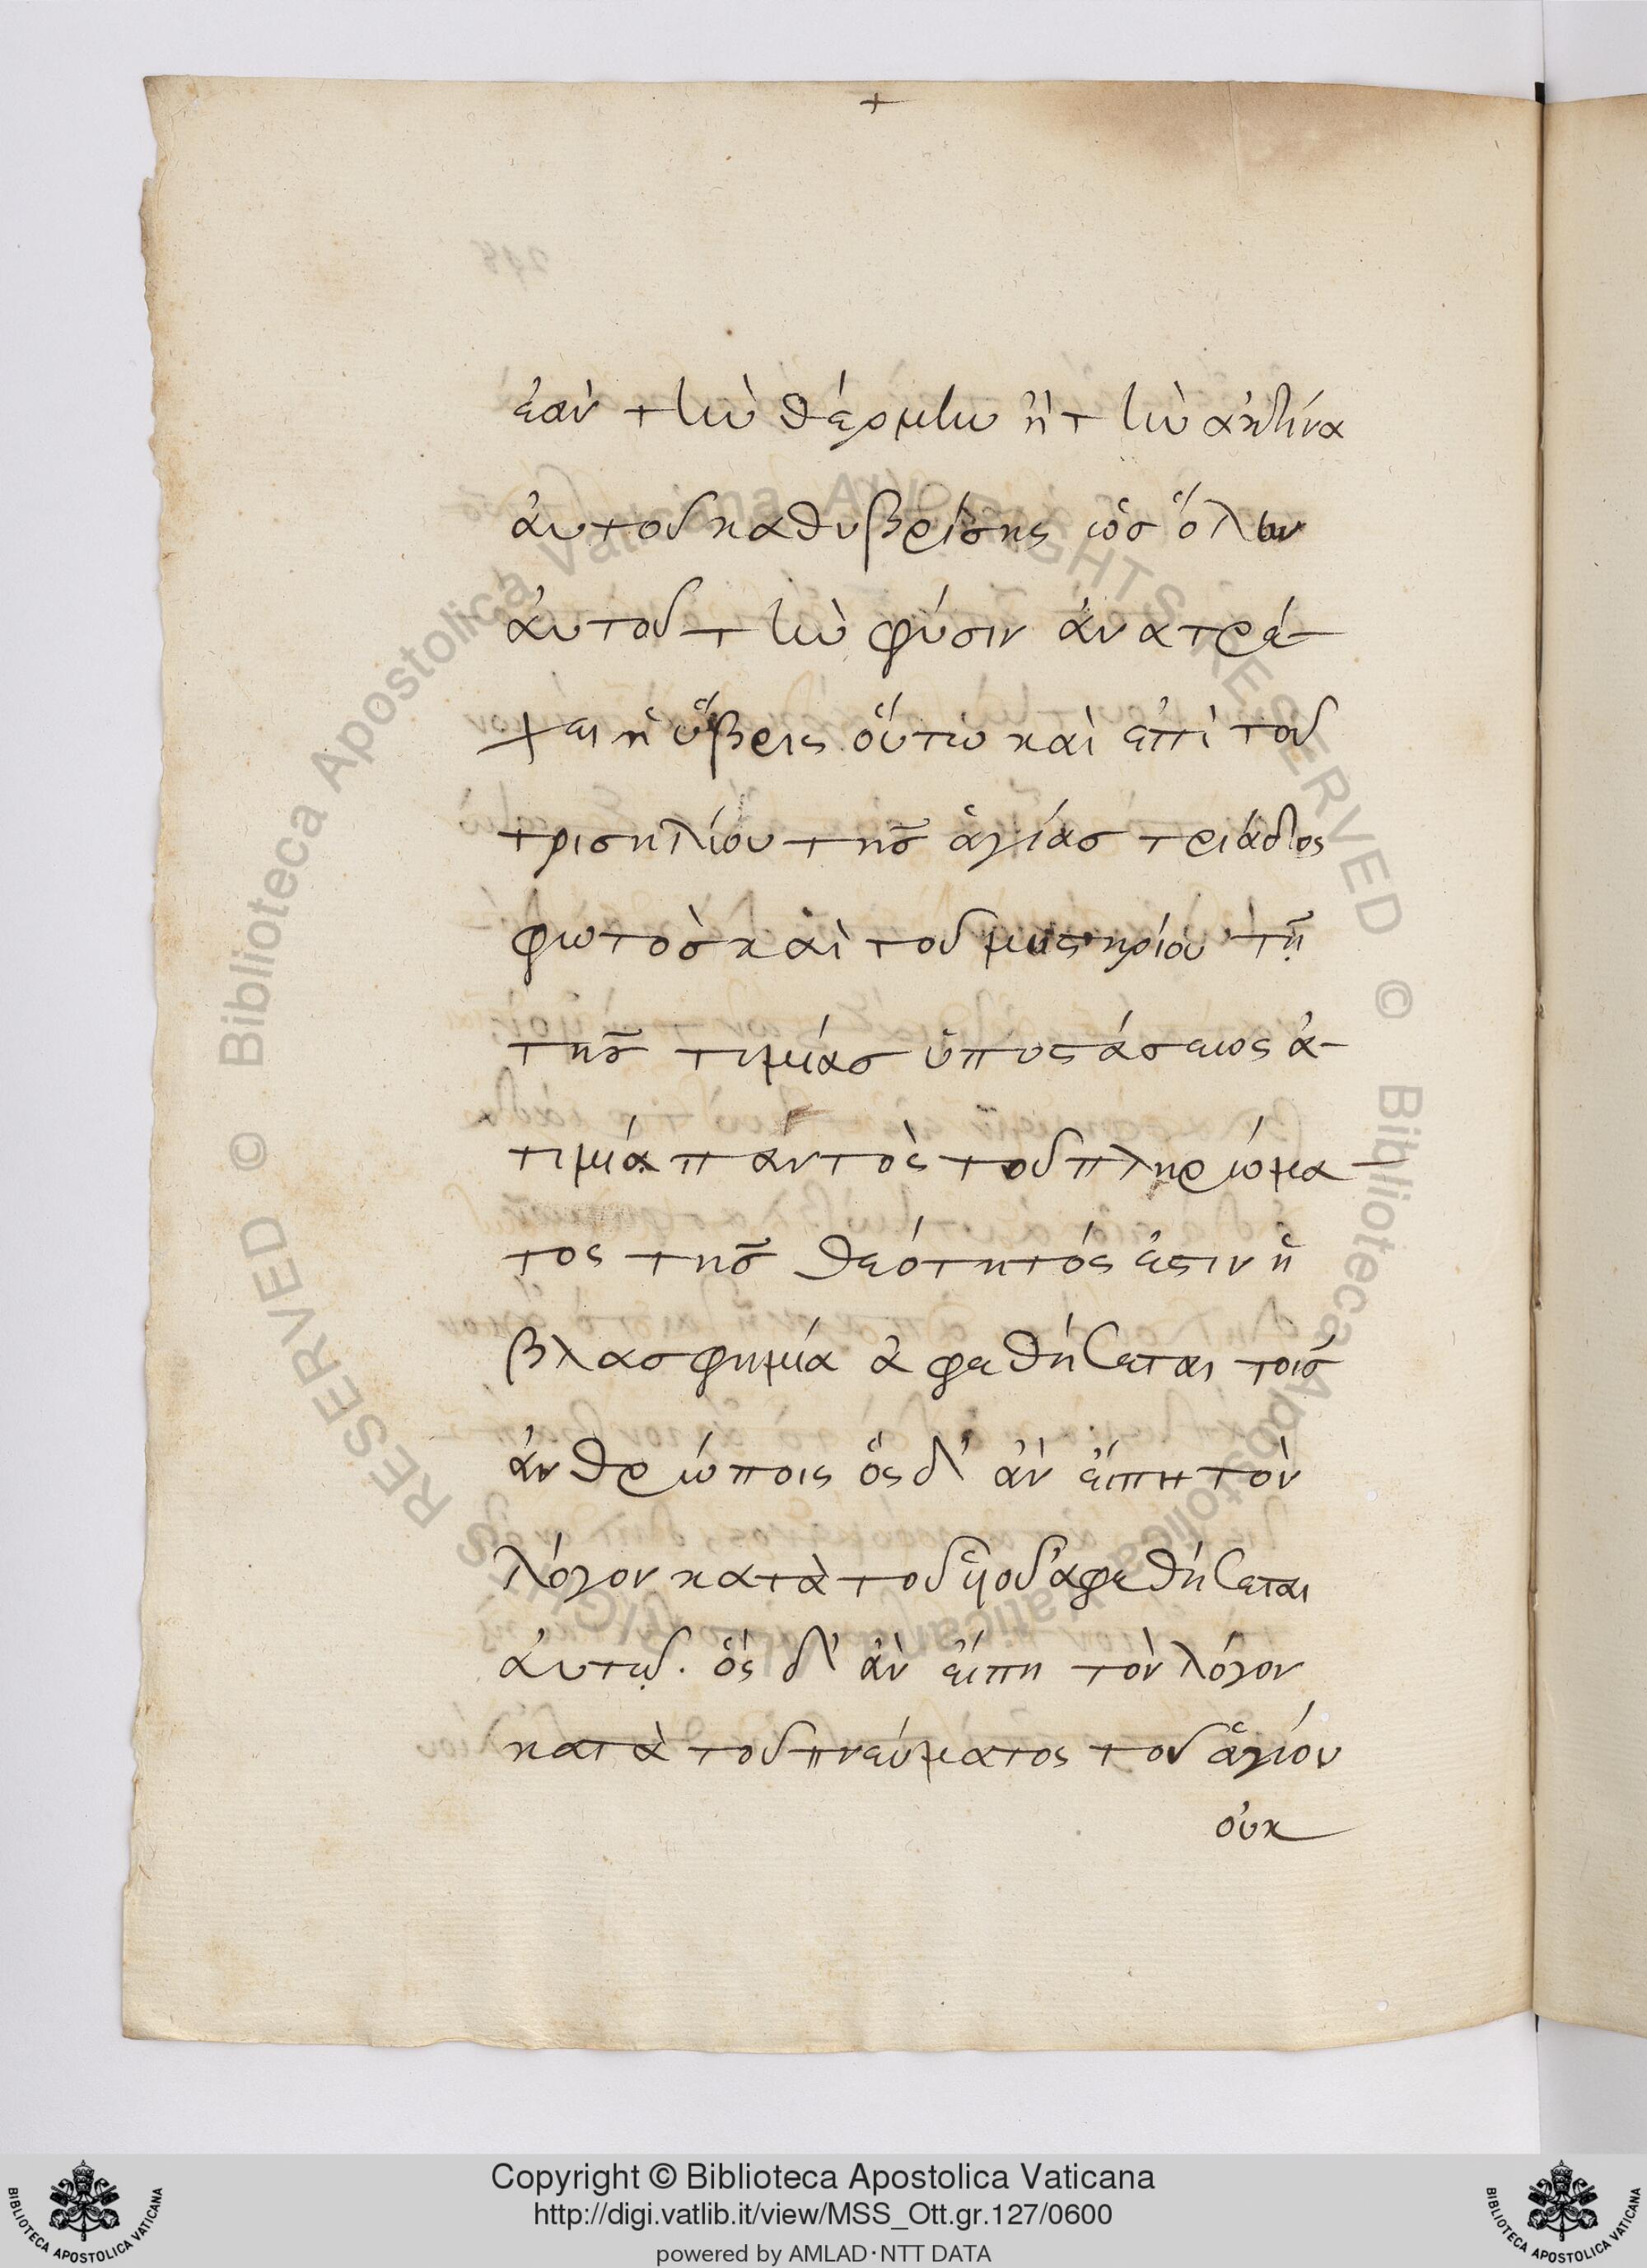 +
ἐὰν τὴν θέρμην ἢ τὴν ἀκτίνα
ἀυτοῦ καθυβρίσης ὡσ ὅλην
ἀυτοῦ τὴν φύσιν ἀνατρέ-
χει ἡ ὕβρις οὕτω καὶ ἐπὶ τοῦ
τρισηλίου τῆσ ἁγίασ τριάδος
φωτὸσ καὶ τοῦ μυστηρίου τῆ
τῆσ τιμίασ ὑποστάσεως ἀ-
τιμία παντὸς τοῦ πληρώμα-
τος τῆσ θεότητός ἐστιν ἡ
βλασφημία ἀφεθήσεται τοῖσ
ἀνθρώποις ὅς δ' ἀν ἔιπη τὸν
λόγον κατὰ τοῦ ὑιοῦ ἀφεθήσεται
ἀυτῷ. ὅς δ' ἀν ἔιπη τὸν λόγον
κατὰ τοῦ πνεύματος τοῦ ἁγίου
ὀυκ
© Biblioteca Apostolica Vaticana ALL RIGHTS RESERVED © Biblioteca Apostolica Vaticana ALL RIGHTS RESERVED
Copyright © Biblioteca Apostolica Vaticana
http://digi.vatlib.it/view/MSS_Ott.gr.127/0600
powered by AMLAD·NTT DATA
BIBLIOTECA APOSTOLICA VATICANA
BIBLIOTECA APOSTOLICA VATICANA